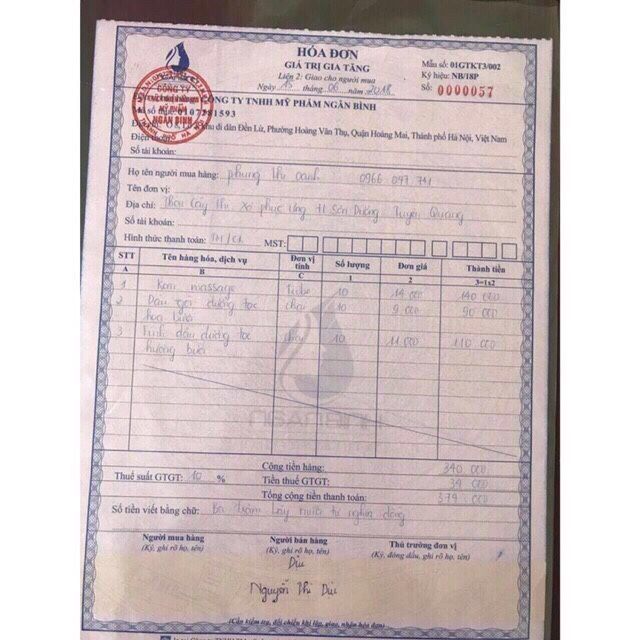 HÓA ĐƠN
GIÁ TRỊ GIA TĂNG
Liên 2: Giao cho người mua
Ngày 15 tháng 06 năm 2018
Mẫu số: 01GTKT3/002
Ký hiệu: NB/18P
Số: 0000057
CÔNG TY
MỸ PHẨM
NGÂN BÌNH
CÔNG TY TNHH MỸ PHẨM NGÂN BÌNH
Mã số thuế: 0107281593
khu di dân Đền Lừ, Phường Hoàng Văn Thụ, Quận Hoàng Mai, Thành phố Hà Nội, Việt Nam
Điện thoại:
Số tài khoản:
Họ tên người mua hàng: phùng thị oanh 0966 097 741
Tên đơn vị:
Địa chỉ: Thôn Cây thị xã phúc ứng H Sơn Dương Tuyên Quang
Số tài khoản:
Hình thức thanh toán: TM/CK MST:
STT Tên hàng hóa, dịch vụ Đơn vị tính Số lượng Đơn giá Thành tiền
A B C 1 2 3=1x2
1 Kem massage tube 10 14 000 140 000
2 Dầu gội dưỡng tóc chai 10 9 000 90 000
hoa bưởi
3 Tinh dầu dưỡng tóc chai 10 11 000 110 000
hương bưởi
Cộng tiền hàng: 340 000
Thuế suất GTGT: 10 % Tiền thuế GTGT: 34 000
Tổng cộng tiền thanh toán: 374 000
Số tiền viết bằng chữ: Ba trăm bảy mươi tư nghìn đồng
Người mua hàng Người bán hàng Thủ trưởng đơn vị
(Ký, ghi rõ họ, tên) (Ký, ghi rõ họ, tên) (Ký, đóng dấu, ghi rõ họ, tên)
Dịu
Nguyễn Thị Dịu
(Cần kiểm tra, đối chiếu khi lập, giao, nhận hóa đơn)